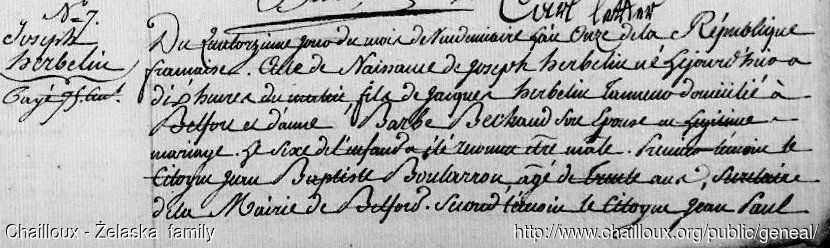 Court letter
N° 7.
Joseph
herbelin
Payé
Du quatorzieme jour du mois de Vendemiaire l'an Onze de la République
francaise. Acte de Naissance de Joseph herbelin né Lejourd'huy a
dix heures du matin, fils de Jacques herbelin Tanneur domicilié à
Belfort et d'anne Barbe Bechaud son Epouse en Legitime
mariage. Le sixe de l'enfand a été reconnu être male. Premier témoin le
Citoyen Jean Baptiste Boularron agé de trente ans, Secretaire
de la Mairie de Belford. Second témoin le Citoyen Jean Paul
Chailloux - Żelaska family
http://www.chailloux.org/public/geneal/